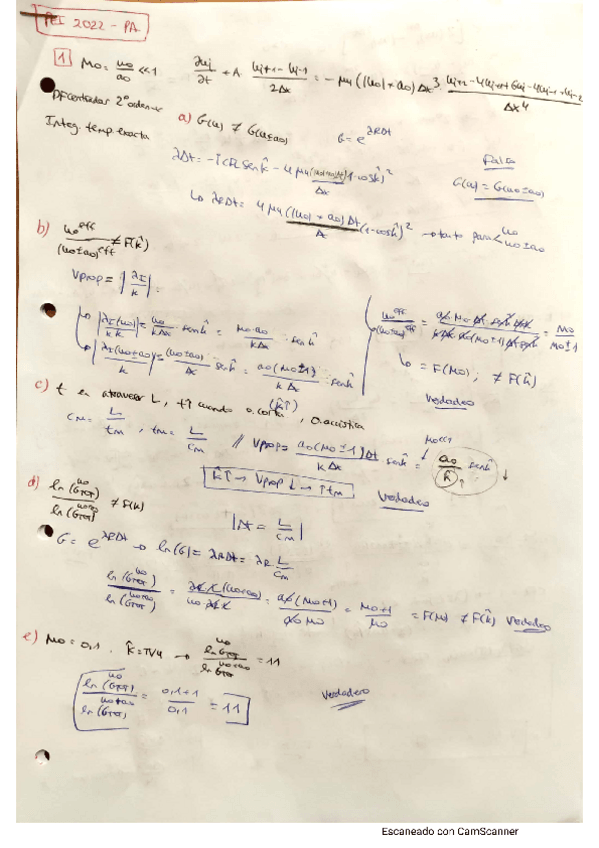 PEI 2022 - PA
1 M0 = u0/a0 << 1   ∂uj/∂t + A · (uj+1 - uj-1)/2Δx = - μ4 (|u0| + a0) Δx³ · (uj+2 - 4uj+1 + 6uj - 4uj-1 + uj-2)/Δx⁴
Integ. temp exacta
a) G(u0) ≠ G(u0±a0)   G = e^λRΔt
λΔt = - i CFL sen k̂ - 4 μ4 (|u0|+a0)Δt/Δx (1-cos k̂)²
Falso
G(u0) = G(u0±a0)
↳ λRΔt = 4 μ4 (|u0| + a0) Δt/Δx (1-cos k̂)² → tanto para < u0
u0±a0
b) u0^eff/(u0±a0)^eff ≠ F(k̂)
Vprop = |λI/k|
↳ |λI(u0)/k| = u0/kΔx sen k̂ = M0·a0/kΔx sen k̂
↳ |λI(u0±a0)/k| = (u0±a0)/Δx sen k̂ = a0(M0±1)/kΔx sen k̂
u0^eff/(u0±a0)^eff = M0/M0±1
↳ = F(M0), ≠ F(k̂)
Verdadero
c) t en atravesar L, t↑ cuando o.corta (k̂↑), o.acústica
cm = L/tm , tm = L/cm // Vprop = a0(M0±1)Δt/kΔx sen k̂ = a0/k̂↑ sen k̂ ↓
M0<<1
k̂↑ → Vprop ↓ → ↑tm
Verdadero
d) ln(GTOT)^u0/ln(GTOT)^u0+a0 ≠ F(k̂)
|Δt = L/cm|
G = e^λRΔt → ln|G| = λRΔt = λR L/cm
ln(GTOT)^u0/ln(GTOT)^u0+a0 = a0(M0+1)/a0 M0 = M0+1/M0 = F(M) ≠ F(k̂) Verdadero
e) M0 = 0,1 , k̂ = π/4 → ln GTOT^u0/ln GTOT^u0+a0 = 11
ln(GTOT)^u0/ln(GTOT)^u0+a0 = 0,1+1/0,1 = 11
Verdadero
Escaneado con CamScanner